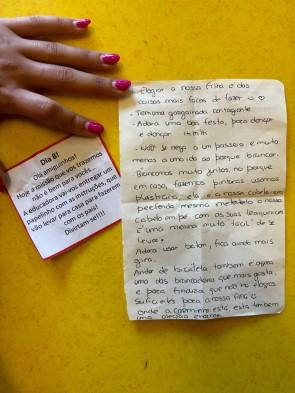 Dia 8!
Olá amiguinhos!
Hoje a missão que vos trazemos
não é bem para vocês...
A educadora vai vos entregar um
papelinho com as instruções, que
vão levar para casa para fazerem
com os pais!
Divirtam-se!!!!
Elogiar a nossa filha é das
coisas mais fáceis de fazer
- Tem uma gargalhada contagiante
- Adora uma boa festa, para dançar
e dançar
- Não se nega a um passeio e muito
menos a uma ida ao parque brincar.
Brincamos muito juntos, no parque
em casa, fazemos pinturas usamos
plasticina, ela é a nossa cabeleireira
preferida mesmo metendo o nosso
cabelo em pé com as suas
É uma menina muito fácil de se
levar,
Adora usar batom, fica ainda mais
gira.
Andar de bicicleta também é agora
uma das brincadeiras que mais gosta,
e para finalizar que não há elogios
suficientes para a nossa filha
onde a está, está também
uma alegria enorme.